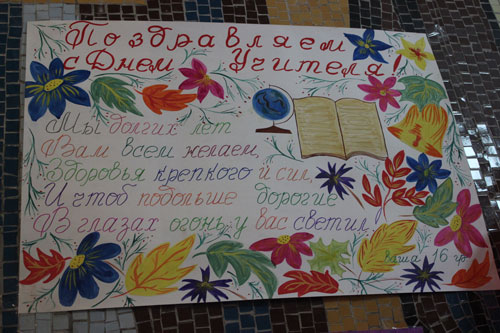 Поздравляем
с Днем Учителя!
Мы долгих лет
Вам всем желаем,
Здоровья крепкого й сил,
И чтоб подольше дорогие
В глазах огонь у вас светил
Ваша 16 гр.